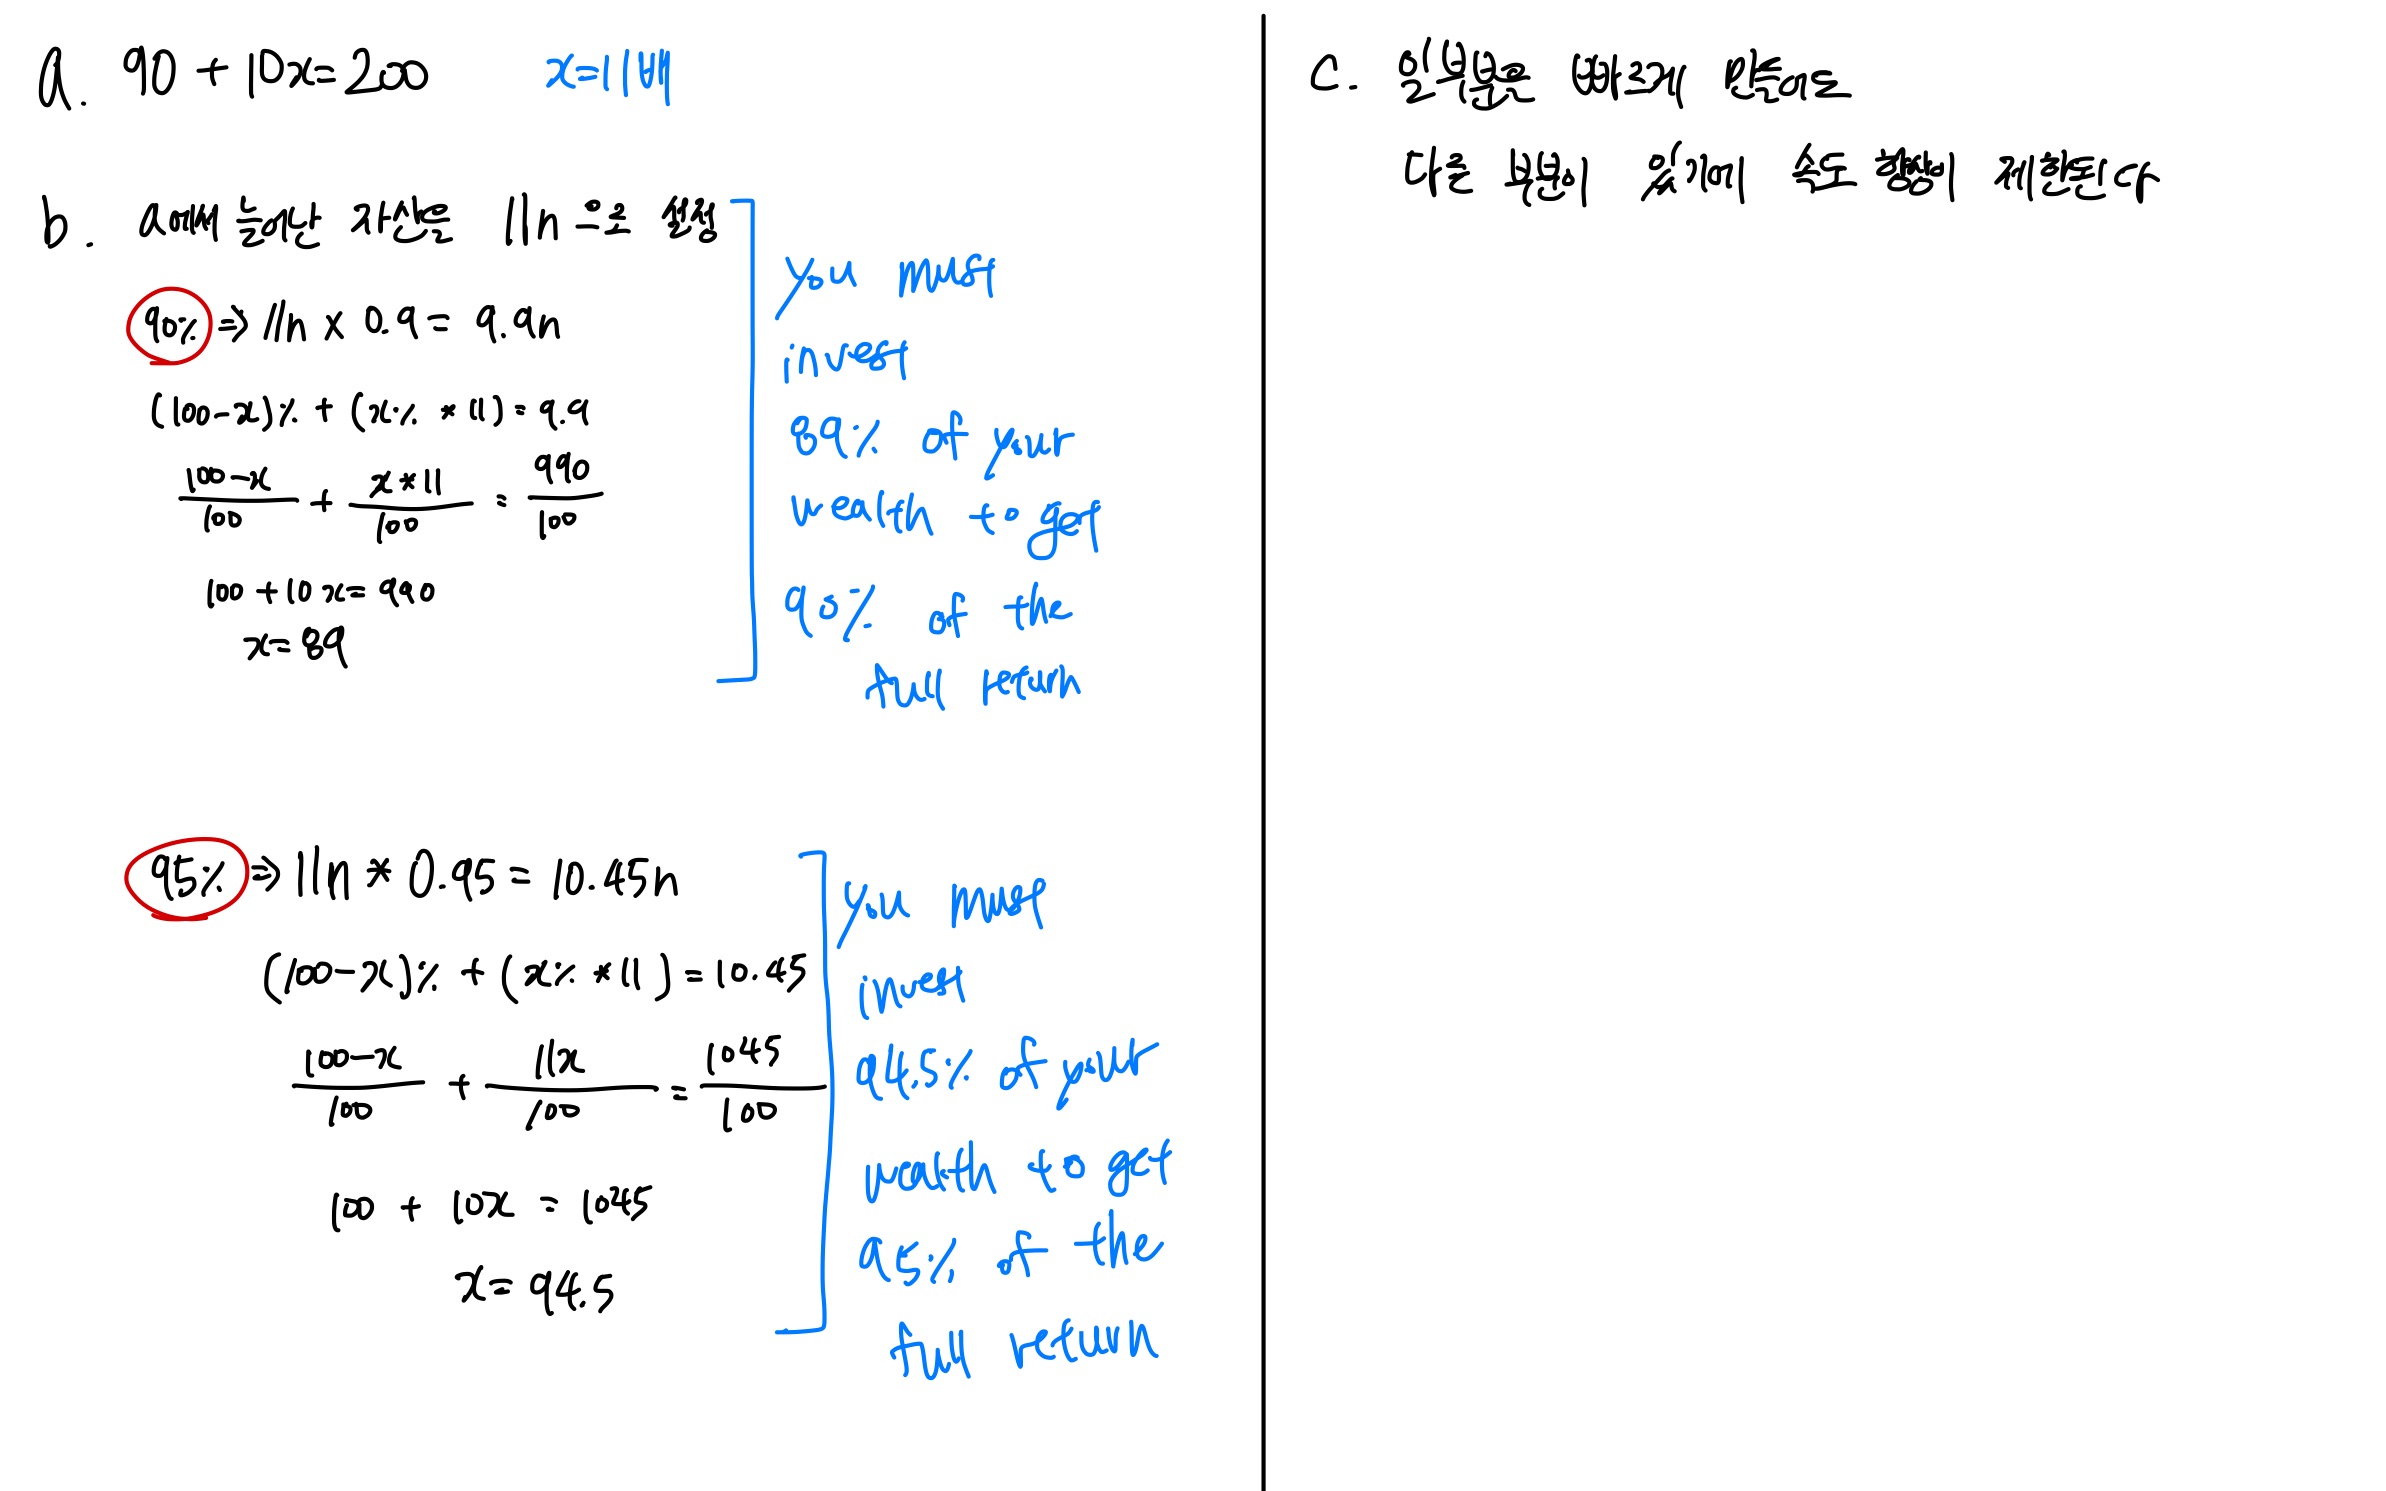 a. 90 + 10x = 200 x = 11
b. a에서 늘어난 자산은 11n으로 설정
90% ⇒ 11n × 0.9 = 9.9n
(100-x)% + (x% * 11) = 9.9
100-x/100 + x*11/100 = 990/100
100 + 10x = 990
x = 89
you must
invest
89% of your
wealth to get
90% of the
full return
95% ⇒ 11n * 0.95 = 10.45n
(100-x)% + (x% * 11) = 10.45
100-x/100 + 11x/100 = 1045/100
100 + 10x = 1045
x = 94.5
You must
invest
94.5% of your
wealth to get
95% of the
full return
c. 일부분은 빠르지 않도록
다른 부분이 용기에 속도 향상이 제한된다